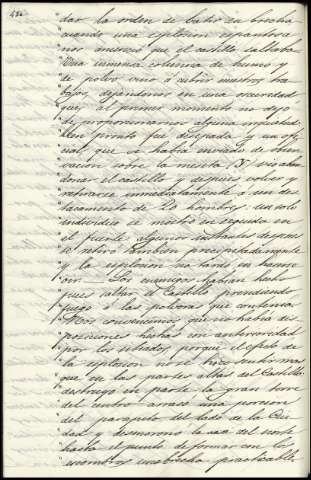 484
"dar la orden de batir en brecha
"cuando una esplosion espantosa
"nos anunció que el castillo saltaba.
"Una inmensa columna de humo y
"de polvo vino á cubrir nuestros tra
"bajos, dejandonos en una oscuridad
"que, al primer momento no dejó
"de proporcionarnos alguna inquietud.
"Bien pronto fué disipada y un ofi
"cial, que se habia enviado de obser
"vacion sobre la meseta, vió aban
"donar el castillo y despues volver y
"retirarse inmediatamente á un des
"tacamento de 20 hombres. Un solo
"individuo se mostró en seguida en
"el fuerte, algunos instantes despues
"se retiró tambien precipitadamente
"y la esplosion no tardó en hacerse
"oir. Los enemigos habian hecho
"pues saltar el Castillo prendiendo
"fuego á las polvoras que contenia.
"Nos convencimos que no habia dis
"posiciones hechas con anterioridad
"por los sitiados, porque el efecto de
"la esplosion no se hizo sentir mas
"que en las partes altas del Castillo:
"destruyó en parte la gran torre
"del centro arrasó una porcion
"del parapeto del lado de la Ciu
"dad y desmoronó la cara del norte
"hasta el punto de formar con los
"escombros una brecha practicable.